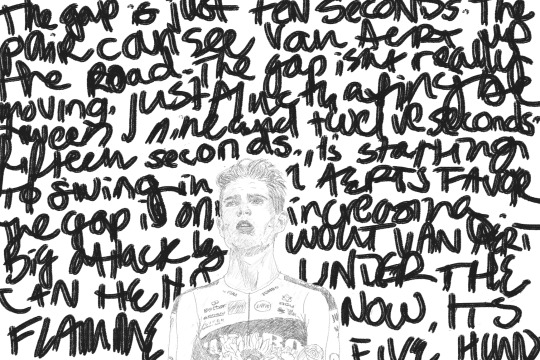 The gap is just ten seconds. The
pair can see van Aert up
the road. The gap isn't really
moving. Just fluctuating
tween nine and twelve seconds.
fifteen seconds. it's starting
To swing in AERTS FAVOR
The gap is only increasing
Big attack by WOUT VAN AERT
CAN HE UNDER THE
FLAMME NOW ITS
FIVE HUND